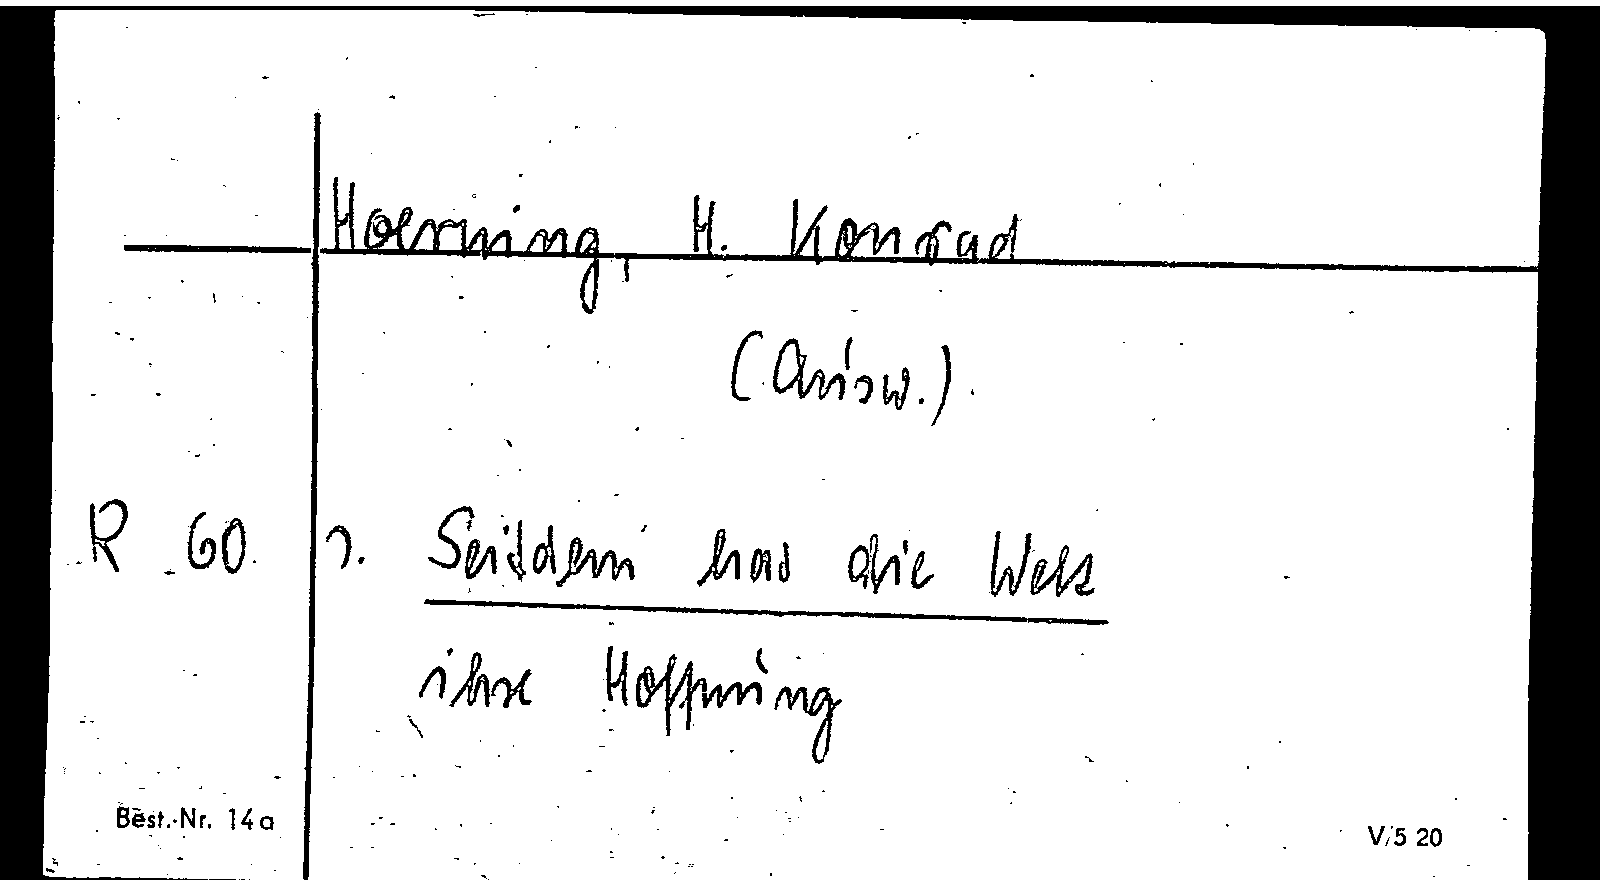 Hoerning, H. Konrad
(Ausw.)
R 60 s. Seitdem hat die Welt
ihre Hoffnung
Best.-Nr. 14a
V/5 20